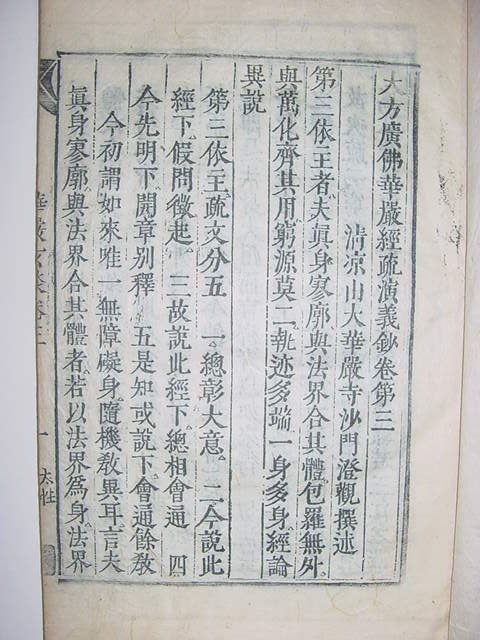 大方廣佛華嚴經疏演義鈔卷第三
清凉山大華嚴寺沙門澄觀撰述
第三依王者夫眞身寥廓與法界合其體包羅無外
與萬化齊其用窮源莫二執迹多端一身多身經論
異說
第三依王疏文分五 一總彰大意 二今說此
經下假問徵起 三故說此經下總相會通 四
今先明下開章別釋 五是知或說下會通餘敎
今初謂如來唯一無障礙身隨機敎異耳言夫
眞身寥廓與法界合其體者若以法界爲身法界
華嚴玄談卷三
一